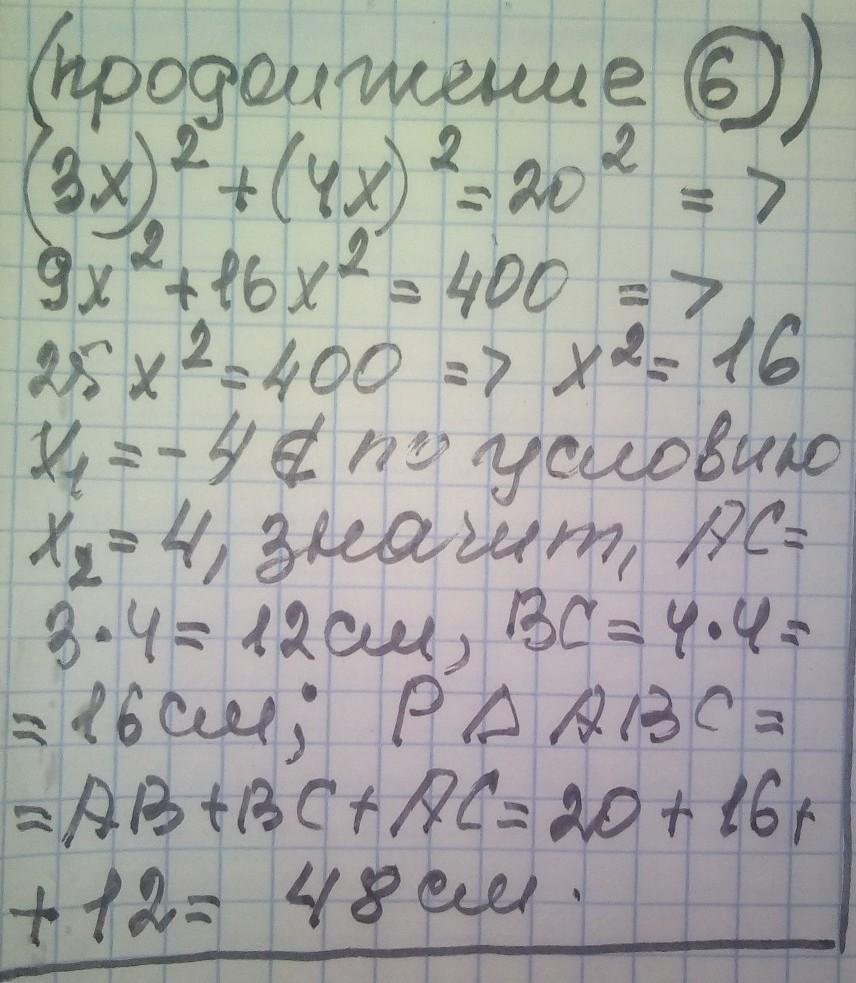 (продолжение ⑥)
(3x)² + (4x)² = 20² =>
9x² + 16x² = 400 =>
25x² = 400 => x² = 16
x₁ = -4 ∉ по условию
x₂ = 4, значит, AC =
3·4 = 12см, BC = 4·4 =
= 16см; P △ ABC =
= AB + BC + AC = 20 + 16 +
+ 12 = 48 см.